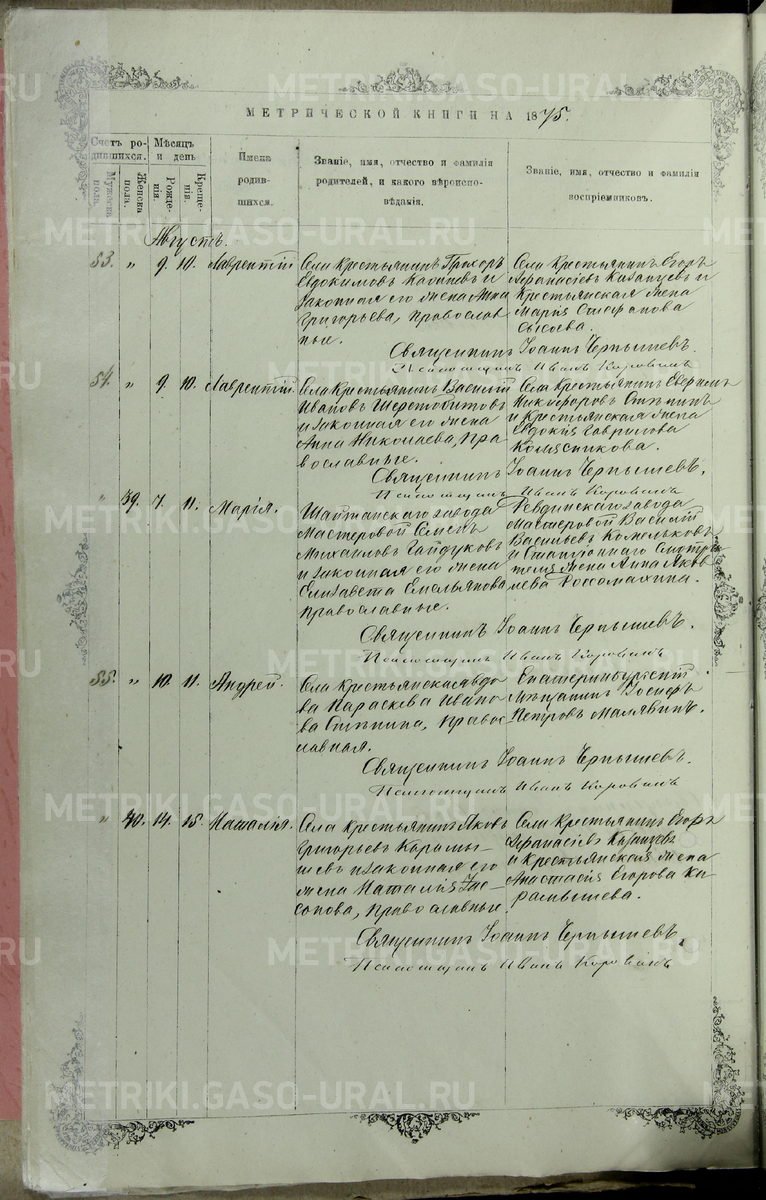 METRIKI.GASO-URAL.RU
МЕТРИЧЕСКОЙ КНИГИ НА 1875.
Счетъ родившихся.
Мужеска пола.
Женска пола.
Мѣсяцъ и день
Рожденія.
Крещенія.
Имена родившихся.
Званіе, имя, отчество и фамилія
родителей, и какого вѣроисповѣданія.
Званіе, имя, отчество и фамилія
воспріемниковъ.
Августъ.
53. " 9. 10. Лаврентій
Села Крестьянинъ Прохоръ
Евдокимовъ и
законная его жена Анна
Григорьева, православные.
Села Крестьянинъ Егоръ
Афанасіевъ Казанцевъ и
Крестьянская жена
Марія Стефанова
Сысоева.
Священникъ Іоаннъ Чернышевъ.
Псаломщикъ Иванъ Коровинъ
54. " 9. 10. Лаврентій.
Села Крестьянинъ Василій
Ивановъ Шерстобитовъ
и законная его жена
Анна Николаева, православные.
Села Крестьянинъ
Никифоровъ
и Крестьянская жена
Евдокія Гаврилова
Колясникова.
Священникъ Іоаннъ Чернышевъ.
Псаломщикъ Иванъ Коровинъ
" 39. 7. 11. Марія.
Шайтанскаго завода
Мастеровой Семенъ
Михаиловъ Гайдуковъ
и законная его жена
Елизавета Емельянова
православные.
Ревдинскаго завода
Мастеровой Василій
Васильевъ
и Станціоннаго Смотрителя жена Анна Яковлева Россомахина.
Священникъ Іоаннъ Чернышевъ.
Псаломщикъ Иванъ Коровинъ
55. " 10. 11. Андрей.
Села Крестьянская вдова Параскева Иванова православная.
Екатеринбургскій
Мѣщанинъ Іосифъ
Петровъ Малявинъ.
Священникъ Іоаннъ Чернышевъ.
Псаломщикъ Иванъ Коровинъ
" 40. 14. 15. Наталія.
Села Крестьянинъ Яковъ
Григорьевъ Карамышевъ и законная его
жена Наталія
православные.
Села Крестьянинъ Егоръ
Афанасіевъ Казанцевъ
и Крестьянская жена
Анастасія Егорова Карамышева.
Священникъ Іоаннъ Чернышевъ.
Псаломщикъ Иванъ Коровинъ